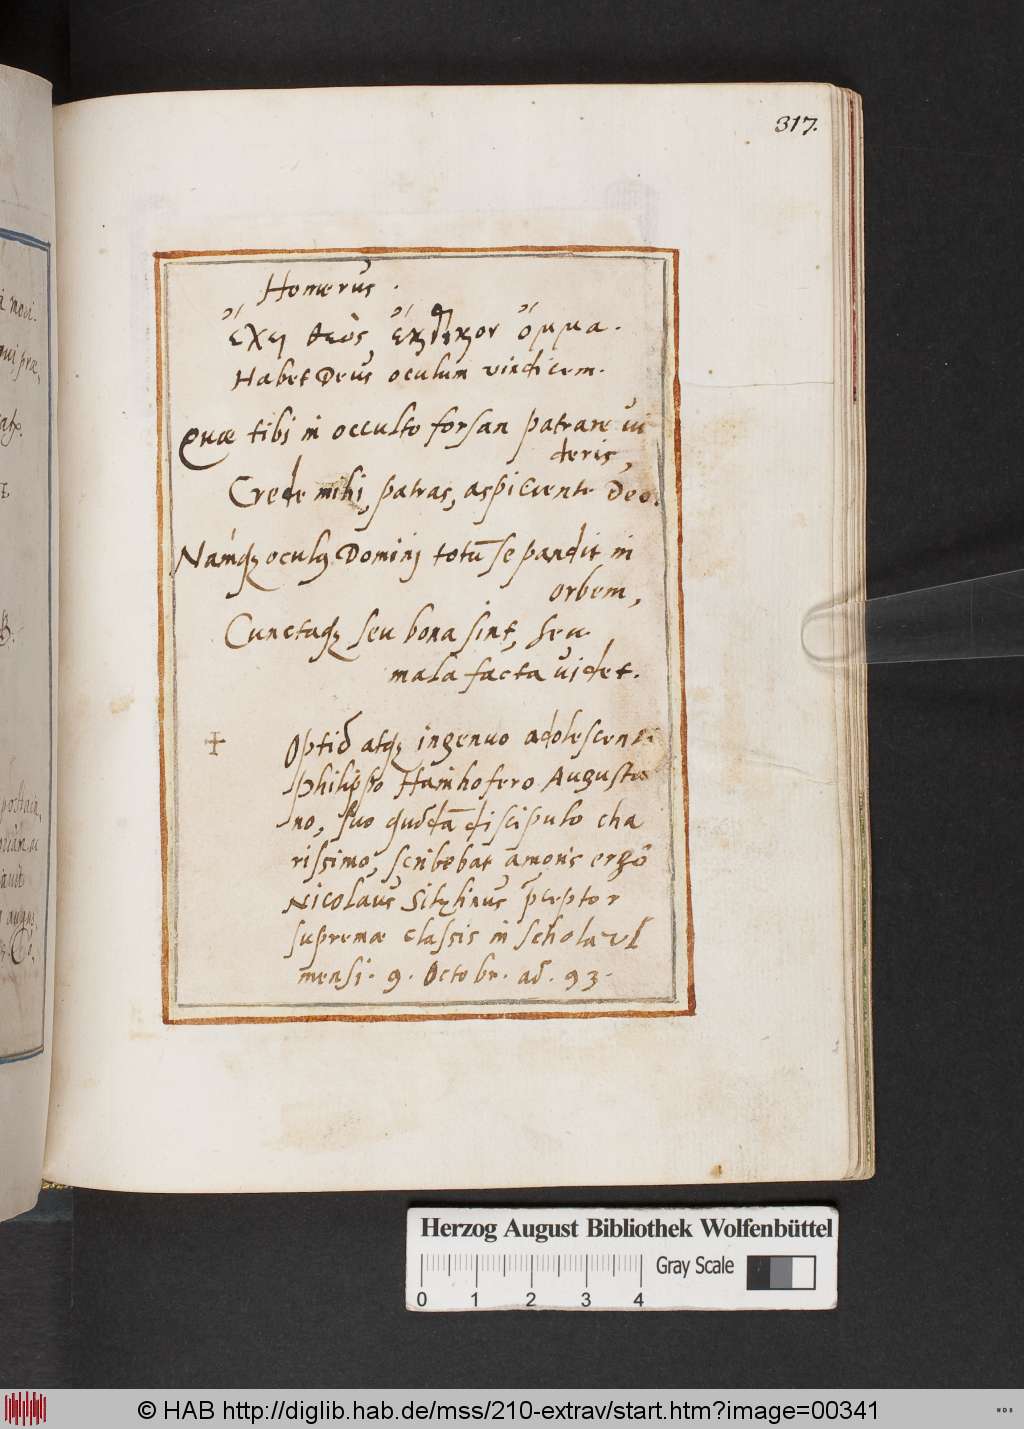 317.
Homerus.
ἔχει θεὸς ἔκδικον ὄμμα.
Habet Deus oculum vindicem.
Quæ tibi in occulto forsan patrare vi
deris,
Crede mihi, patras, aspiciente Deo.
Namqꝫ oculꝰ Domini totū se pandit in
orbem,
Cunctaqꝫ seu bona sint, seu
mala facta videt.
atqꝫ ingenuo adolescenti
Philippo Hainhofero Augusta
no, suo discipulo cha
rissimo, scribebat amoris ergò
Nicolaus p̄ceptor
supremæ classis in schola Vl
mensi. 9. Octobr. 93.
Herzog August Bibliothek Wolfenbüttel
0 1 2 3 4
Gray Scale
© HAB http://diglib.hab.de/mss/210-extrav/start.htm?image=00341